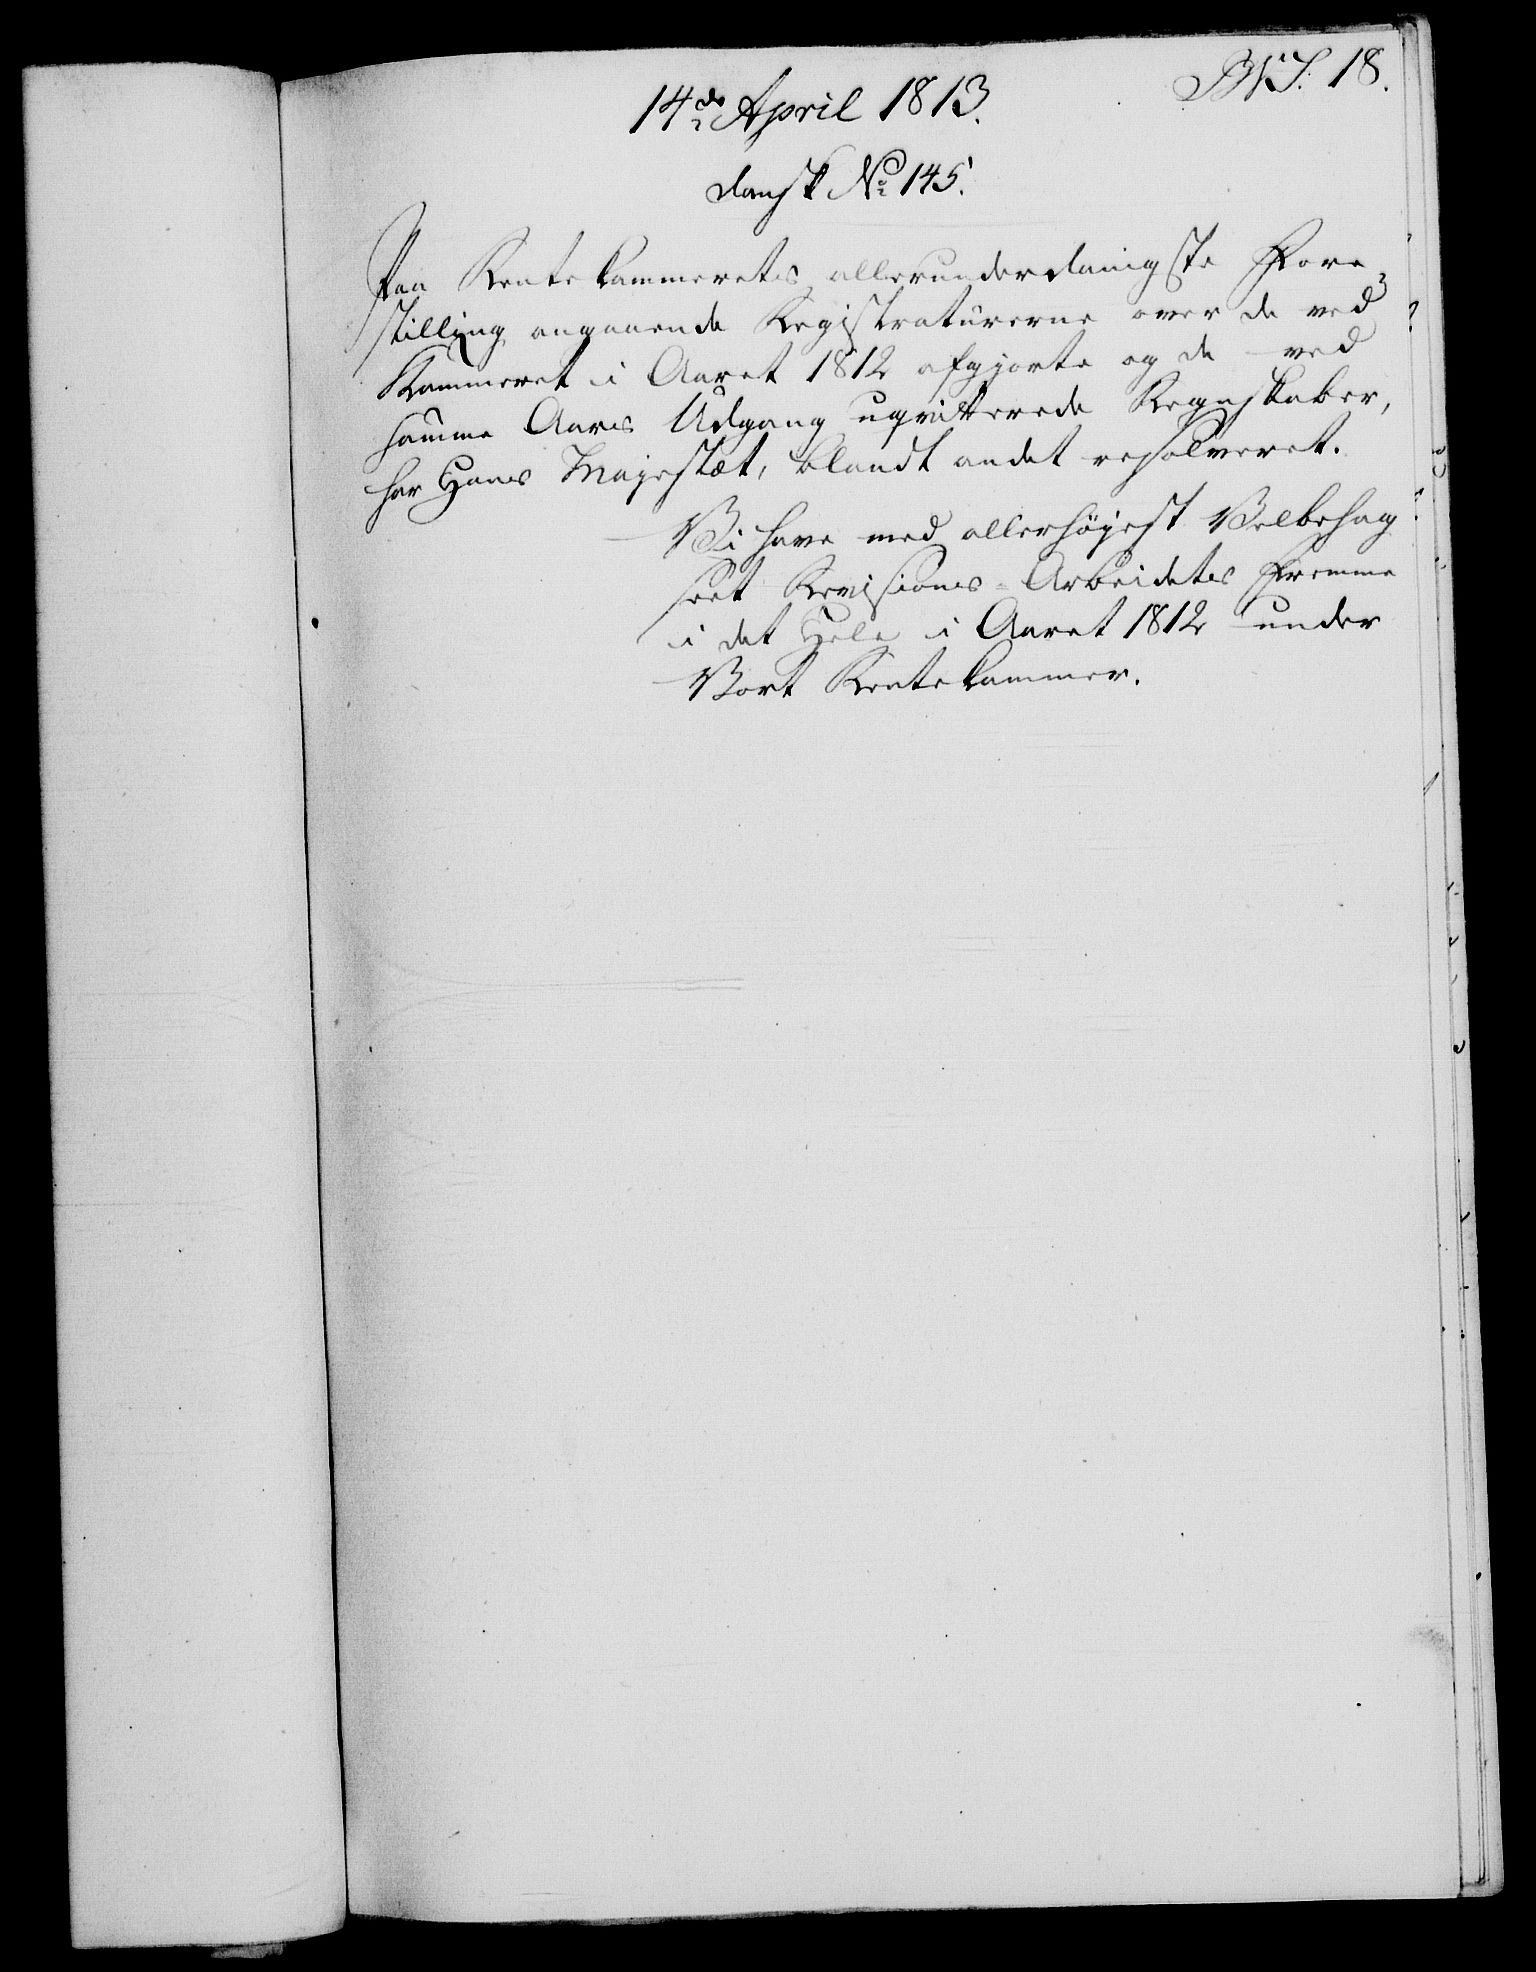 14de April 1813.
18.
dansk No 145.
Paa Rentekammerets allerunderdanigste Fore-
stilling angaaende Registraturerne over de ved
Kammeret i Aaret 1812 afgjorte og de ved
samme Aars Udgang uqvitterede Regnskaber,
har Hans Majestæt, blandt andet resolveret.
Vi have med allerhöjest Velbehag
seet Revisions-Arbeidets Fremme
i det Hele i Aaret 1812 under
Vort Rentekammer.